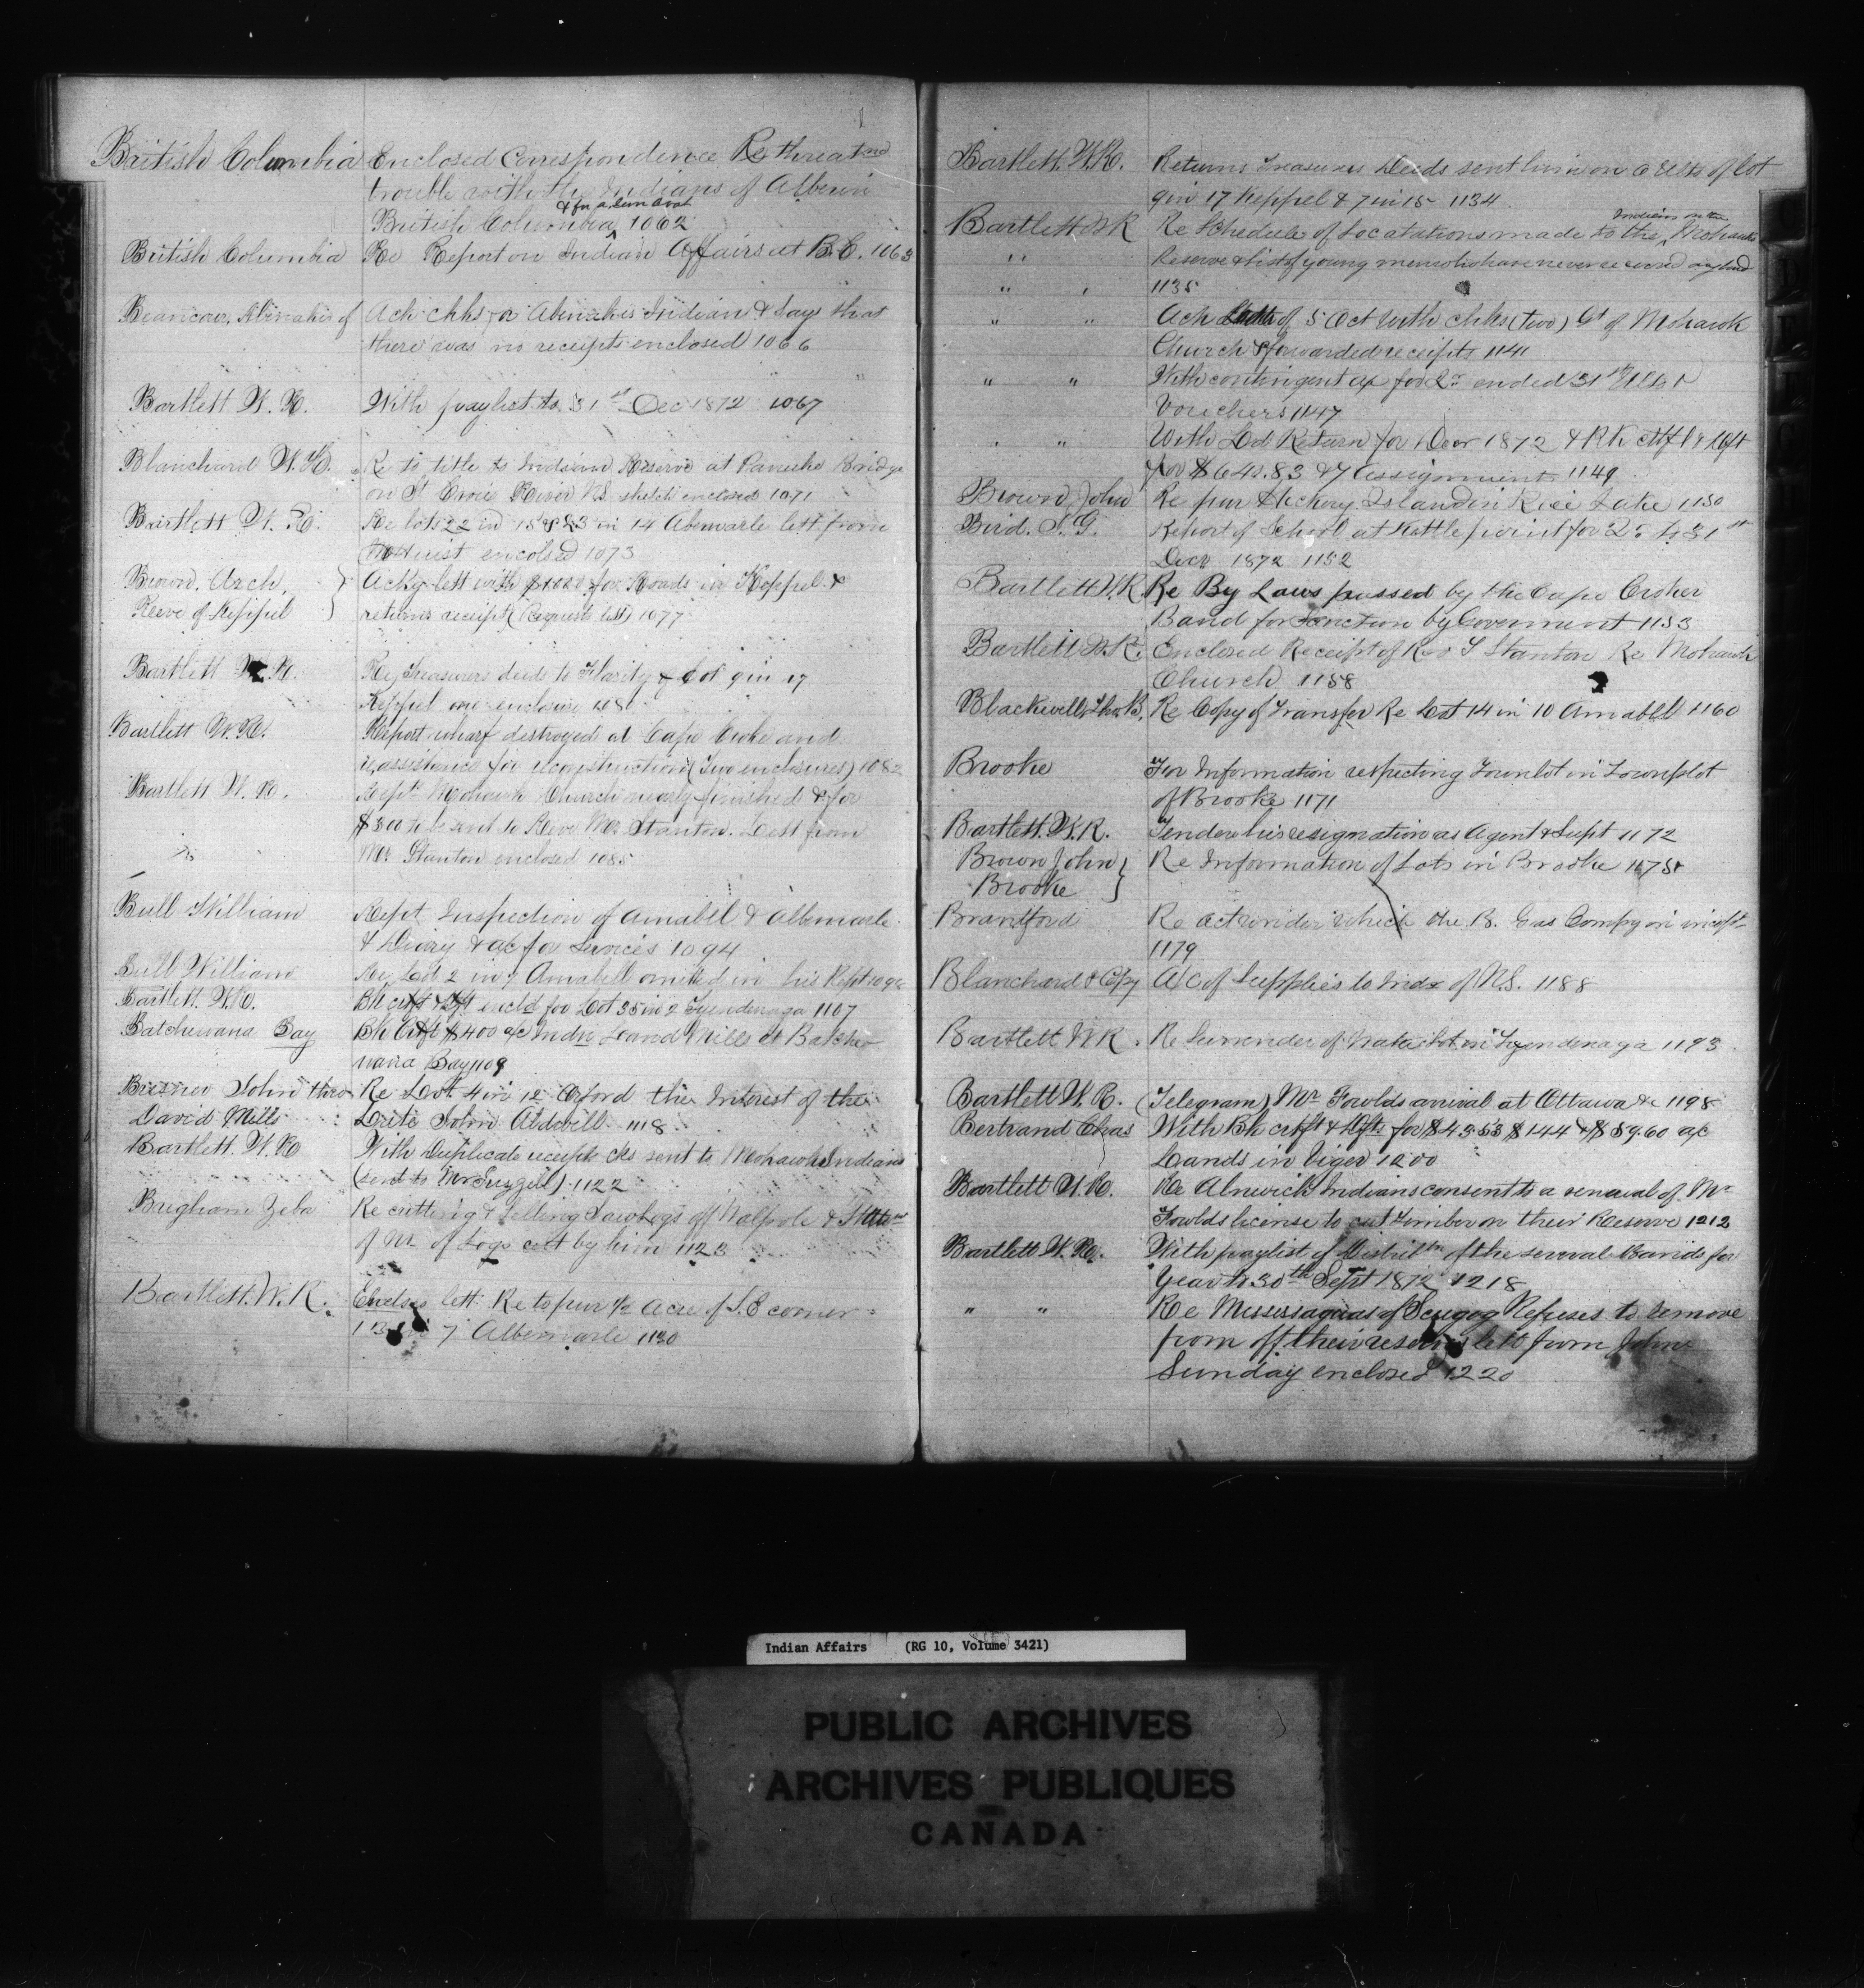 British Columbia Enclosed Correspondence Re threatned
trouble with the Indians of Alberni
& for a Gun Boat
British Columbia 1062
British Columbia Re Report on Indian Affairs at B.C. 1063
Becancour, Abinakis of Ack chks for Abinakis Indian & Say that
there was no receipts enclosed 1066
Bartlett W. R. With paylist to 31st Dec 1872 1067
Blanchard W. H. Re to title to Indian Reserve at Bridge
on St Croix River N.S. sketch enclosed 1071
Bartlett W. R. Re lots 22 in 15 & 23 in 14 Abemarle lett from
enclosed 1073
Brown, Arch, } Ackg lett with $1000 for Roads in Keppel &
Reeve of Keppel returns receipt (Request lett) 1077
Bartlett W. R. Re Treasurers deeds to Flarity of Lot 9 in 17
Keppel one enclosure 1080
Bartlett W. R. Report wharf destroyed at Cape Croker and
assistance for reconstruction (Two enclosures) 1082
Bartlett W. R. Rept Mohawk Church nearly finished & for
$300 to be sent to Revr Mr Stanton. Lett from
Mr Stanton enclosed 1085
Bull William Rept Inspection of Amabel & Albemarle
& Diary & a/c for Services 1094
Bull William Re Lot 2 in 7 Amabell omitted in his Rept 1094
Bartlett. W.R. Bk certf & Dft encld for Lot 35 in 2 Tyendenaga 1107
Batchewana Bay Bk Certf $400 a/c Indn Land Mills at Batche
wana Bay 1109
John thro Re Lot 4 in 12 Orford the Interest of the
David Mills Late John 1118
Bartlett. W.R With Duplicate receipts cks sent to Mohawk Indians
(sent to Mr ) 1122
Brigham Zeba Re cutting & Selling Sawlogs off Walpole &
of No of Logs cut by him 1123
Bartlett. W. R. Encloses lett Re to pur ½ Acre of S.E corner
7 Albemarle 1130
Bartlett. W.R. Returns Treasurers Deeds sent him on of lot
9 in 17 Keppel & 7 in 15 1134
Indians on the
Bartlett W R Re Schedule of Locatations made to the Mohawks
" Reserve & list of young men who have never received any land
" " 1135
" " Ack Letter of 5 Oct with chks (two) Gt of Mohawk
Church & forwarded receipts 1141
" " With contingent a/c for Qr ended 31st
Vouchers 1147
" " With Ld Return for Decr 1872 & Bk certf &
for $640.83 & 7 Assignment 1149
Brown John Re pur Hickory Island in Rice Lake 1150
Bird. S. G. Report of School at Kettle point for Qr 31st
Decr 1872 1152
Bartlett W.R. Re By Laws passed by the Cape Croker
Band for Sanction by Goverment 1153
Bartlett W.R. Enclosed Receipt of Rev T Stanton Re Mohawk
Church 1158
Blackwell, Thos B, Re Copy of Transfer Re Lot 14 in 10 Amabel 1160
Brooke For Information respecting Town lot in Townplot
of Brooke 1171
Bartlett. W. R. Tenders his resignation as Agent & Supt 1172
Brown John } Re Information of Lots in Brooke 1175
Brooke
Brantford Re act under which the B. Gas Compy
1179
Blanchard & Cpy A/C of Supplies to Inds of N.S. 1188
Bartlett W R. Re Surrender of Lot in Tyendenaga 1193
Bartlett W. R. (Telegram) Mr Fowlds arrival at Ottawa &c 1198
Bertrand Chas With Bk certft & Dfts for $43.53 $144 & $89.60 a/c
Lands in Viger 1200
Bartlett W. R. Re Alnwick Indians consent to a renewal of Mr
Fowlds license to cut Timber on their Reserve 1212
Bartlett W. R. With paylist of Distribtn of the several Bands for
Year to 30th Sept 1872 1218
" " Re Mississaguas of Scugog Refuses to remove
from off their reserve lett from John
Sunday enclosed 1220
Indian Affairs (RG 10, Volume 3421)
PUBLIC ARCHIVES
ARCHIVES PUBLIQUES
CANADA